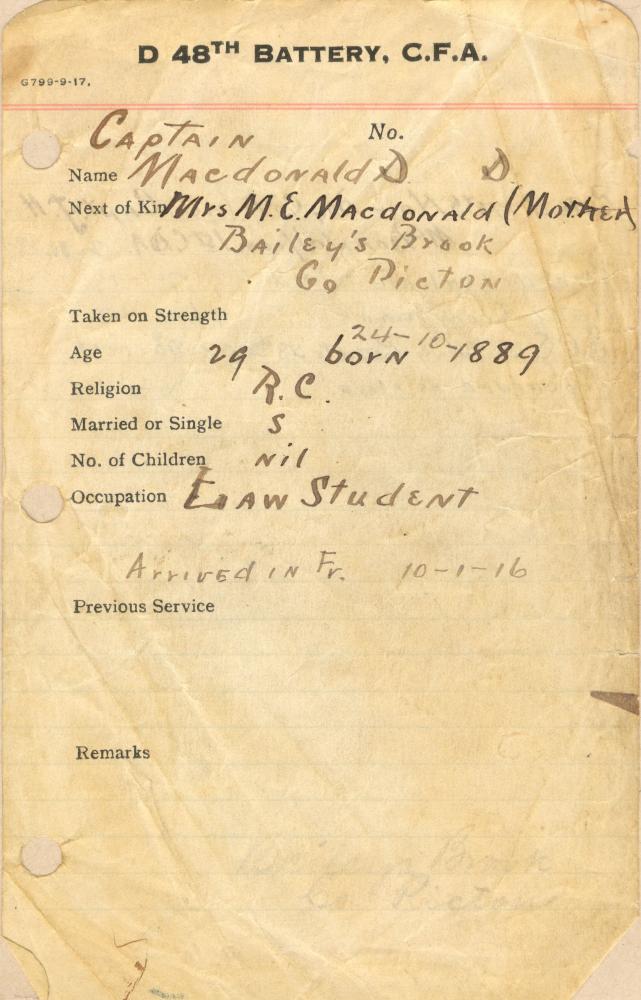 D 48TH BATTERY, C.F.A.
G799-9-17.
Captain No.
Name Macdonald D. D.
Next of Kin Mrs M.E. Macdonald (Mother)
Bailey's Brook
Co Picton
Taken on Strength
Age 29 born 24-10-1889
Religion R.C.
Married or Single S
No. of Children nil
Occupation Law Student
Arrived in Fr. 10-1-16
Previous Service
Remarks
Brook
Co Picton